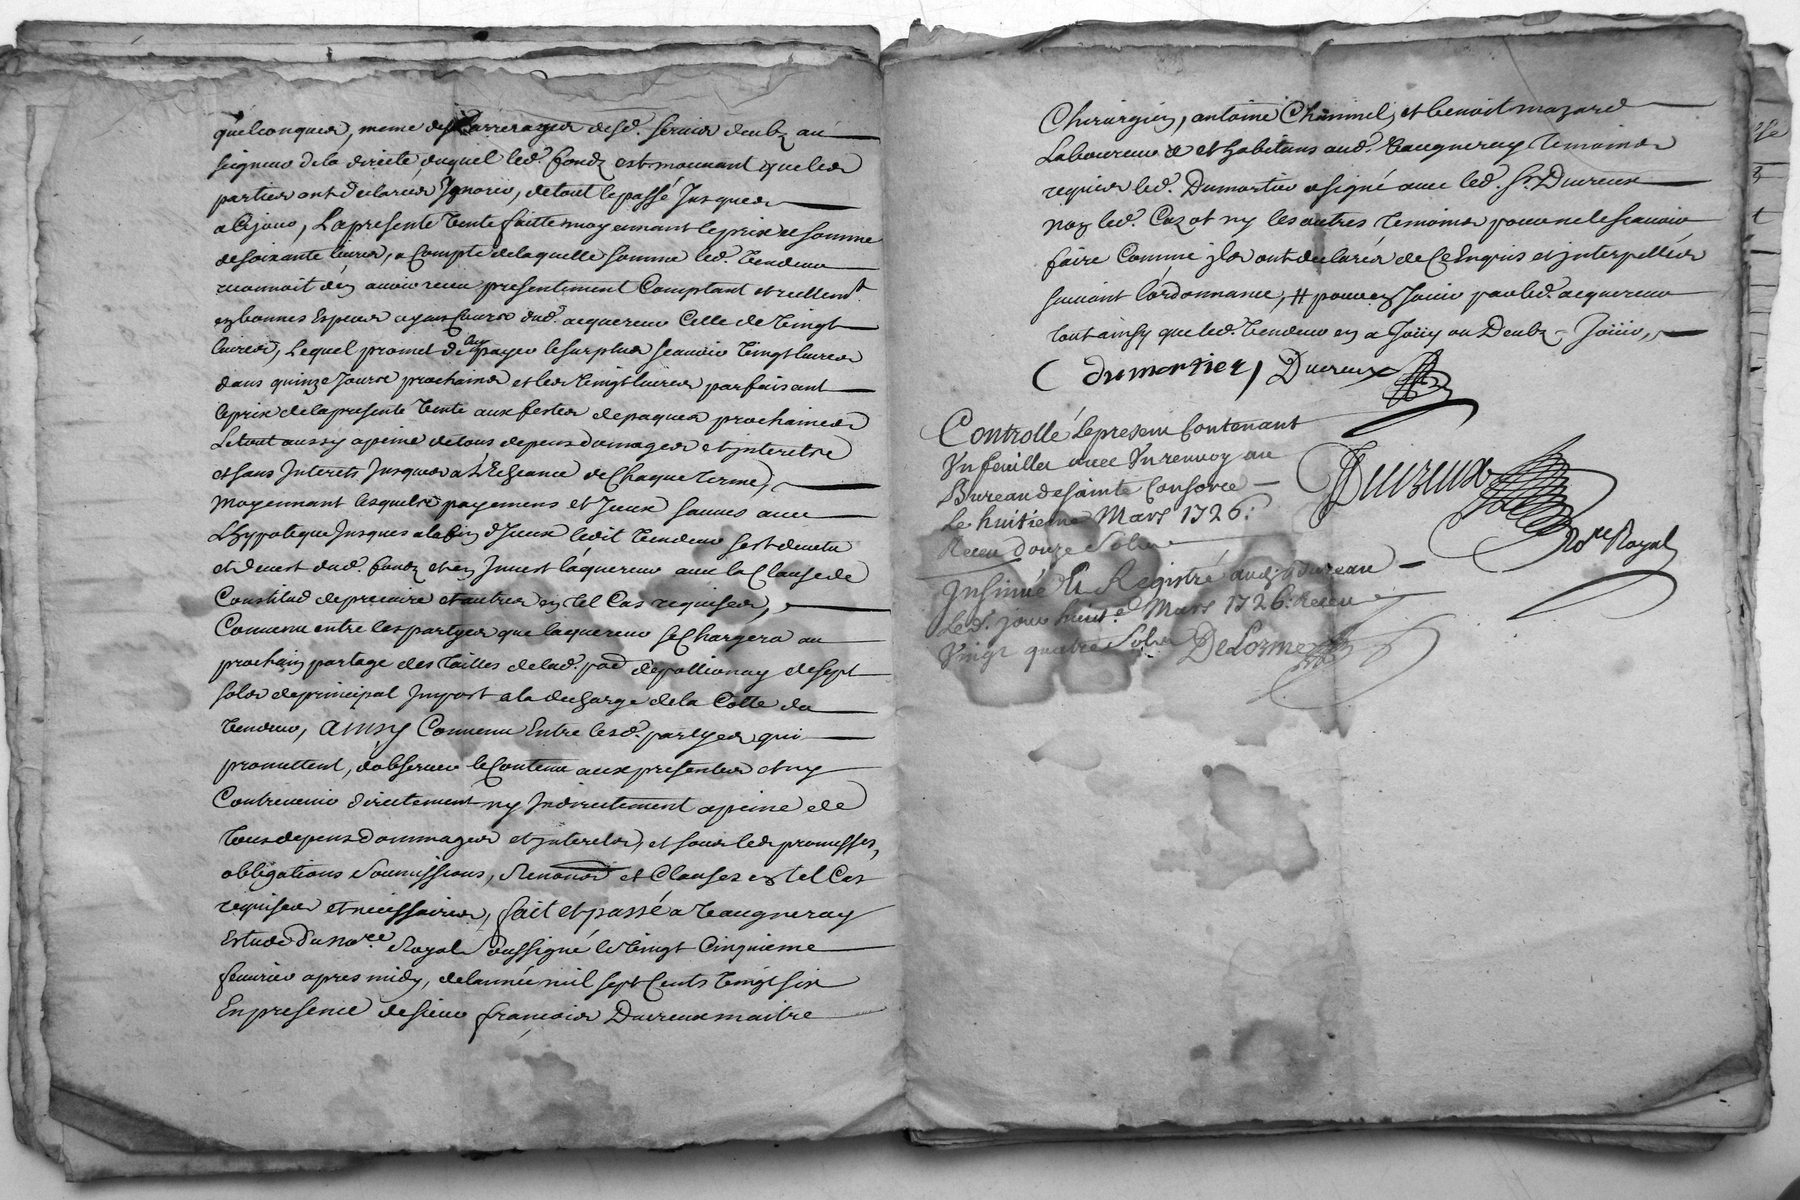 quelconques, meme des arrerages desd. servis deubz au
seigneur dela directe duquel led. fondz est mouuant que les
parties ont declarées Ignorer, de tout le passé Jusques
a Cejour, La presente Vente faitte moyennant le prix et somme
de soixante liures, a Compte de laquelle somme led. Vendeur
reconnoit déz auoir receu presentement Comptant et reellemt.
en bonnes Especes ayans Cours dud. acquereur Celle de Vingt
liures, Lequel promet de luy payer le surplus scauoir Vingt liures
dans quinze Jours prochains et les Vingt liures parfaisant
le prix de la presente Vente aux festes de paques prochaines
Le tout aussy a peine de tous depens domages et jnterets
et sans Interets Jusques a L'Echeance de Chaque Terme,
moyennant lesquels payemens et Jceux sauues auec
L'hypoteque Jusques a la fin d'Jceux ledit Vendeur s'est deuetu
et deuest dud. fondz et en Jnuest l'aquereur auec la Clause de
Constitud de precaire et autres en tel Cas requises,
Conuenu entre les partyes que laquereur se Chargera au
prochain partage des Tailles de lad. pard. de pollionay de sept
sols de principal Import a la decharge de la Cotte du
Vendeur, ainsy Conuenu Entre lesd. partyes qui
promettent, d'obseruer le Contenu aux presentes et ny
Contreuenir directement ny Indirectement a peine de
tous depens dommages et jnterets, et sous les promesses,
obligations Soumissions, Renonons et Clauses en tel Cas
requises et necessaires, fait et passé a Vaugneray
Estude du nore. Royal soussigné le Vingt Cinquieme
feurier apres midy, de lannée mil sept Cents Vingt six
En presence de sieur françois Ducreux maitre
Chirurgien, antoine Chammel, et benoit mazard
Laboureurs et habitans aud. Vaugneray Temoins
requis led. Dumortier a signé auec led. Sr. Ducreux
non led. Cazot ny les autres temoins pour ne le scauoir
faire Comme jls ont declarés de Ce Enquis et jnterpellés
suiuant l'ordonnance, # pour en Jouir par led. acquereur
tout ainsy que led. Vendeur en a Jouy ou Deubz Jouir,
dumortier, Ducreux
Controllé le present Contenant
Vn feuillet auec Vn renuoy au
Bureau de sainte Consorce
Le huitieme Mars 1726:
Receu douze Sols
Insinué & Registré audit bureau
Led. jour huite. Mars 1726: Receu
Vingt quatre Sols DeLorme
Ducreux
Nore Royal